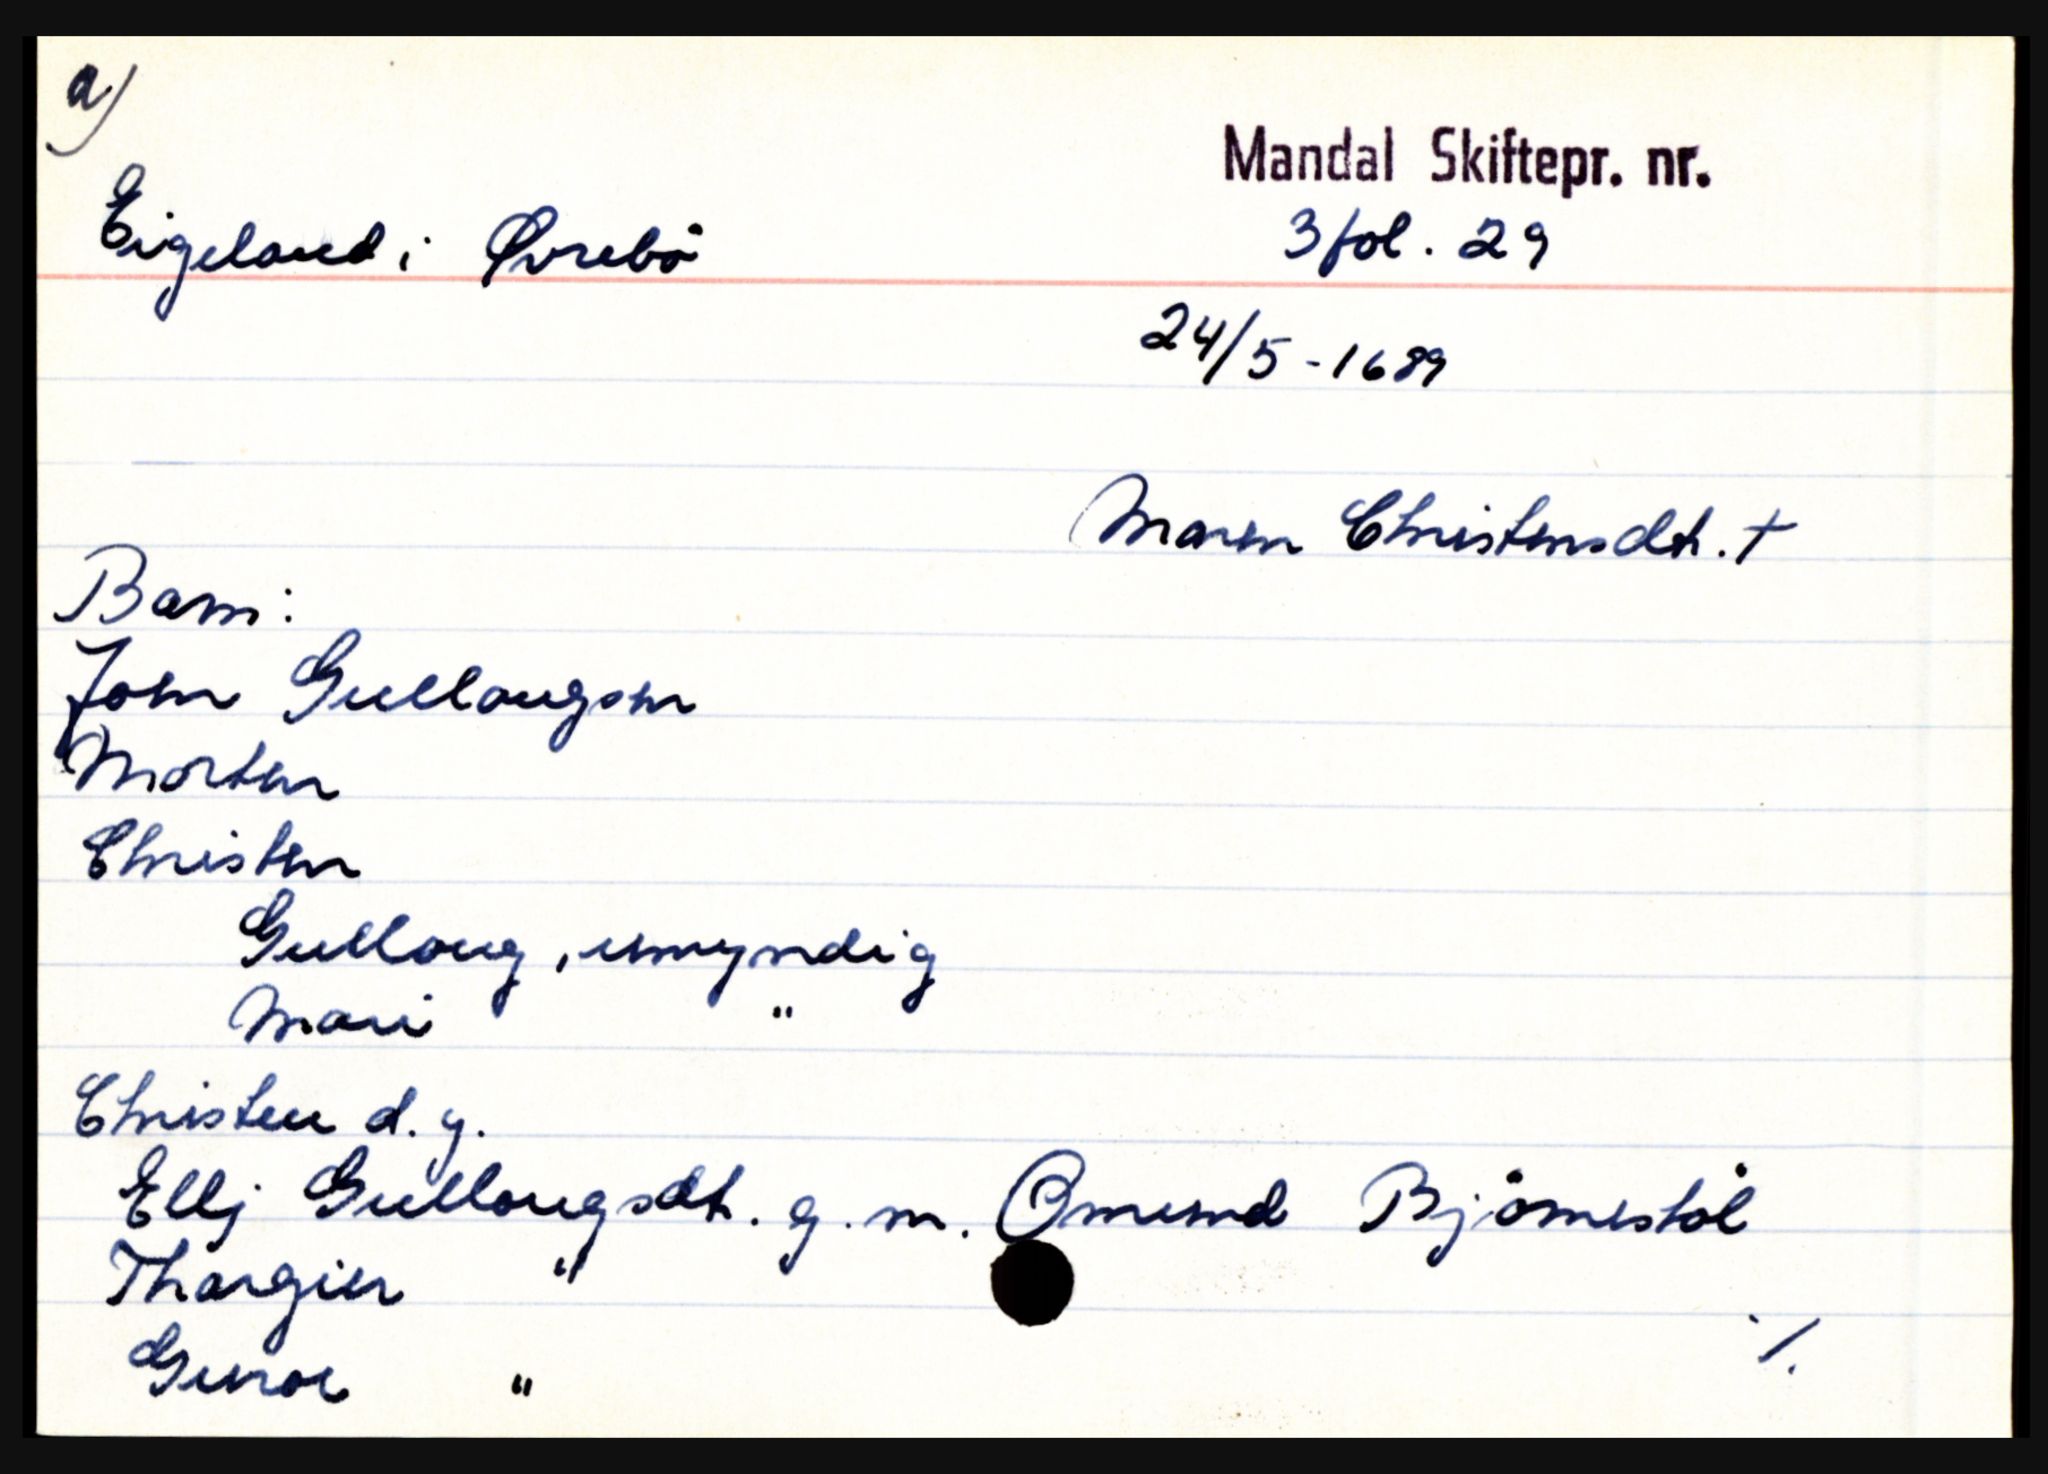 a)
Mandal Skiftepr. nr.
Eigeland i Øvrebö
3 fol. 29
24/5 - 1689
Maren Christensdtr. †
Barn:
John Gullaugsen
Morten
Christen
Gullaug, umyndig
Mari "
Christen d. y.
Ellj Gullaugsdtr. g. m. Omund Björnestöl
Thorgier "
Guroe "
./.